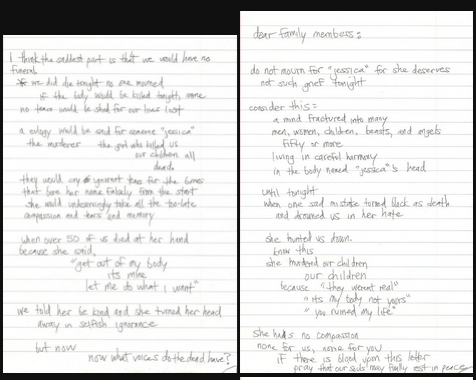 I think the saddest part is that we would have no
funeral.
if we did die tonight no one mourned
if the body would be killed tonight, none
no tears would be shed for our lives lost
a eulogy would be said for someone "jessica"
the murderer the girl who killed us
our children all
dead.
they would cry ignorant tears for the bones
that bore her name falsely from the start
she would undeservingly take all the too-late
compassion and tears and memory
when over 50 of us died at her hand
because she said,
"get out of my body
its mine
let me do what i want"
we told her be kind and she turned her head
away in selfish ignorance
but now
now what voices do the dead have?
dear family members:
do not mourn for "jessica" for she deserves
not such grief tonight
consider this:
a mind fractured into many
men, women, children, beasts, and angels
fifty or more
living in careful harmony
in the body named "jessica"'s head
until tonight
when one sad mistake turned black as death
and drowned us in her hate
she hunted us down.
know this
she murdered our children
our children
because "they weren't real"
"its my body not yours"
"you ruined my life"
she has no compassion
none for us, none for you
if there is blood upon this letter
pray that our souls may finally rest in peace